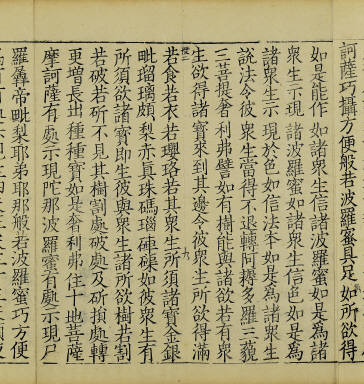 訶薩巧攝方便般若波羅蜜具足如所欲得
如是能作如諸衆生信諸波羅蜜如是爲諸
衆生示現諸波羅蜜如諸衆生信色如是爲
諸衆生示現於色如信法本如是爲諸衆生
說法令彼衆生當得不退轉阿耨多羅三藐
三菩提奢利弗譬如有樹能與諸欲若有衆
生欲得諸寶來到其邊令彼衆生所欲得滿
若食若衣若瓔珞若其衆生所須諸寶金銀
毗瑠璃頗梨赤真珠碼瑙硨磲如彼衆生有
所須欲諸寶即生彼與衆生諸所欲樹若割
若破若斫不見其樹割處破處及斫損處轉
更增長出種種寶如是奢利弗住十地菩薩
摩訶薩有處示現陀那波羅蜜有處示現尸
羅羼帝毗梨耶弟耶那般若波羅蜜巧方便